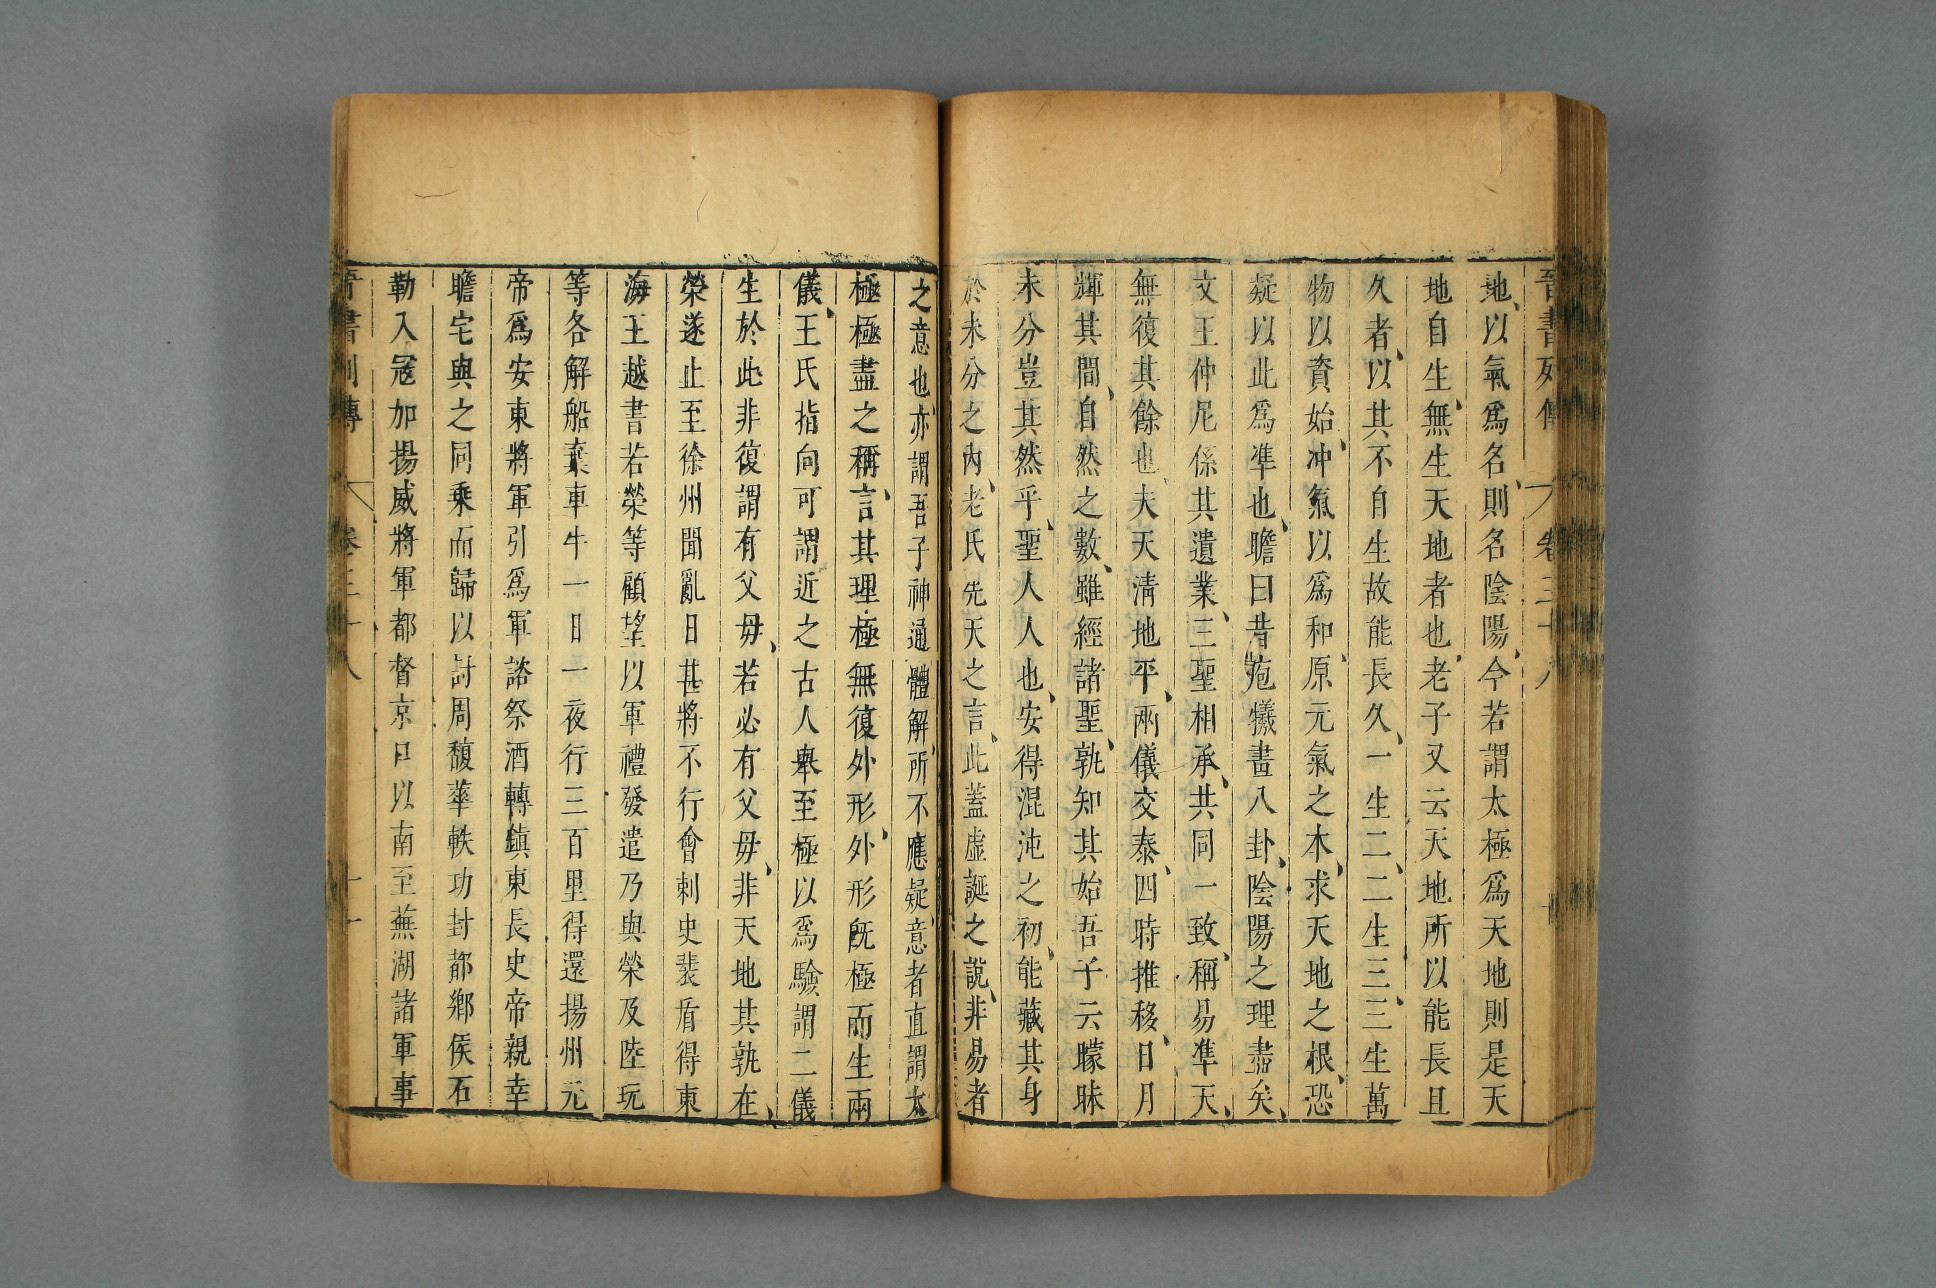 晉書列傳 卷三十八 十
地、以氣爲名、則名陰陽、今若謂太極爲天地則是天
地自生、無生天地者也、老子又云天地所以能長且
久者、以其不自生故能長久、一生二、二生三、三生萬
物以資始、冲氣以爲和、原元氣之本、求天地之根、恐
疑以此爲準也、瞻曰昔庖犧畫八卦、陰陽之理盡矣、
文王仲尼係其遺業、三聖相承、共同一致、稱易準天、
無復其餘也夫天清地平、兩儀交泰、四時推移、日月
輝其間、自然之數、雖經諸聖、孰知其始吾子云矇昧
未分豈其然乎、聖人人也、安得混沌之初、能藏其身
於未分之內、老氏先天之言、此蓋虛誕之說、非易者
之意也、亦謂吾子神通體解、所不應疑、意者直謂太
極極盡之稱、言其理極無復外形、外形旣極而生兩
儀、王氏指向可謂近之古人舉至極以爲驗謂二儀
生於此非復謂有父母、若必有父母、非天地其孰在、
榮遂止至徐州聞亂日甚將不行會刺史裴盾得東
海王越書若榮等顧望以軍禮發遣乃與榮及陸玩
等各解船棄車牛一日一夜行三百里得還揚州元
帝爲安東將軍引爲軍諮祭酒轉鎮東長史帝親幸
瞻宅與之同乘而歸以討周馥華軼功封都鄉侯石
勒入寇加揚威將軍都督京口以南至蕪湖諸軍事
晉書列傳 卷三十八 十一